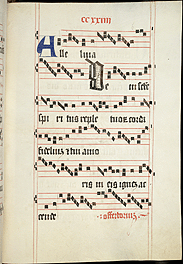 cc xxiiii
Alle luia
Ve ni sctē
spi ri tus reple tuoꝝ cordi
fideliuꝫ ⁊ tui amo
ris in eis igneꝫ ac
cende offertoriuꝫ